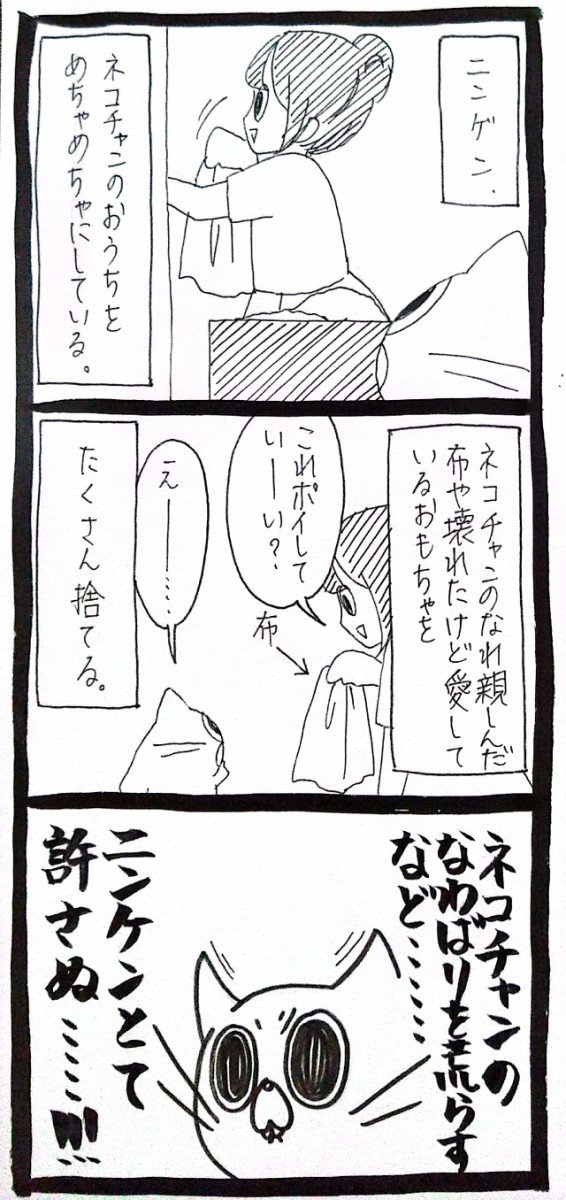 ニンゲン、
ネコチャンのおうちを
めちゃめちゃにしている。
ネコチャンのなれ親しんだ
布や壊れたけど愛して
いるおもちゃを
これポイして
いーーい?
布
えーー……
たくさん捨てる。
ネコチャンの
なわばりを荒らす
など……………
ニンケンとて
許さぬ……!!!